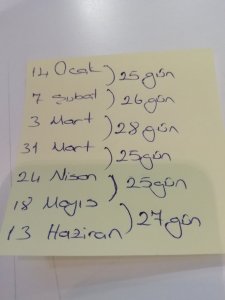 14 Ocak
25 gün
7 Şubat
26 gün
3 Mart
28 gün
31 Mart
25 gün
24 Nisan
25 gün
18 Mayıs
27 gün
13 Haziran